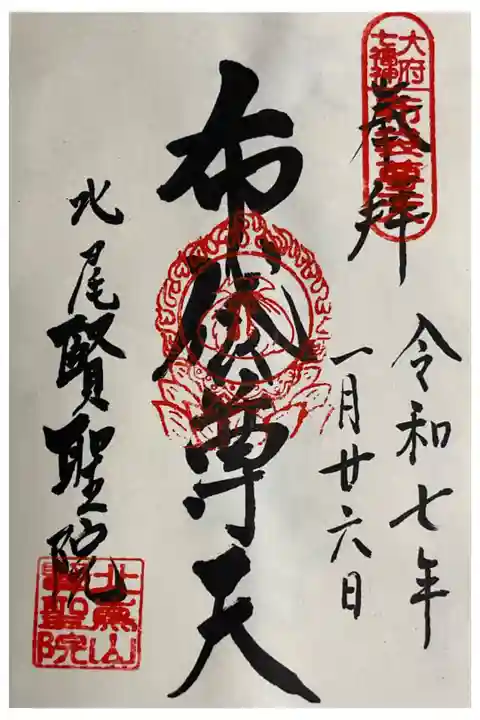 大府
七福神
布袋尊天
奉拝
令和七年
一月廿六日
布袋尊天
北尾賢聖院
賢聖院